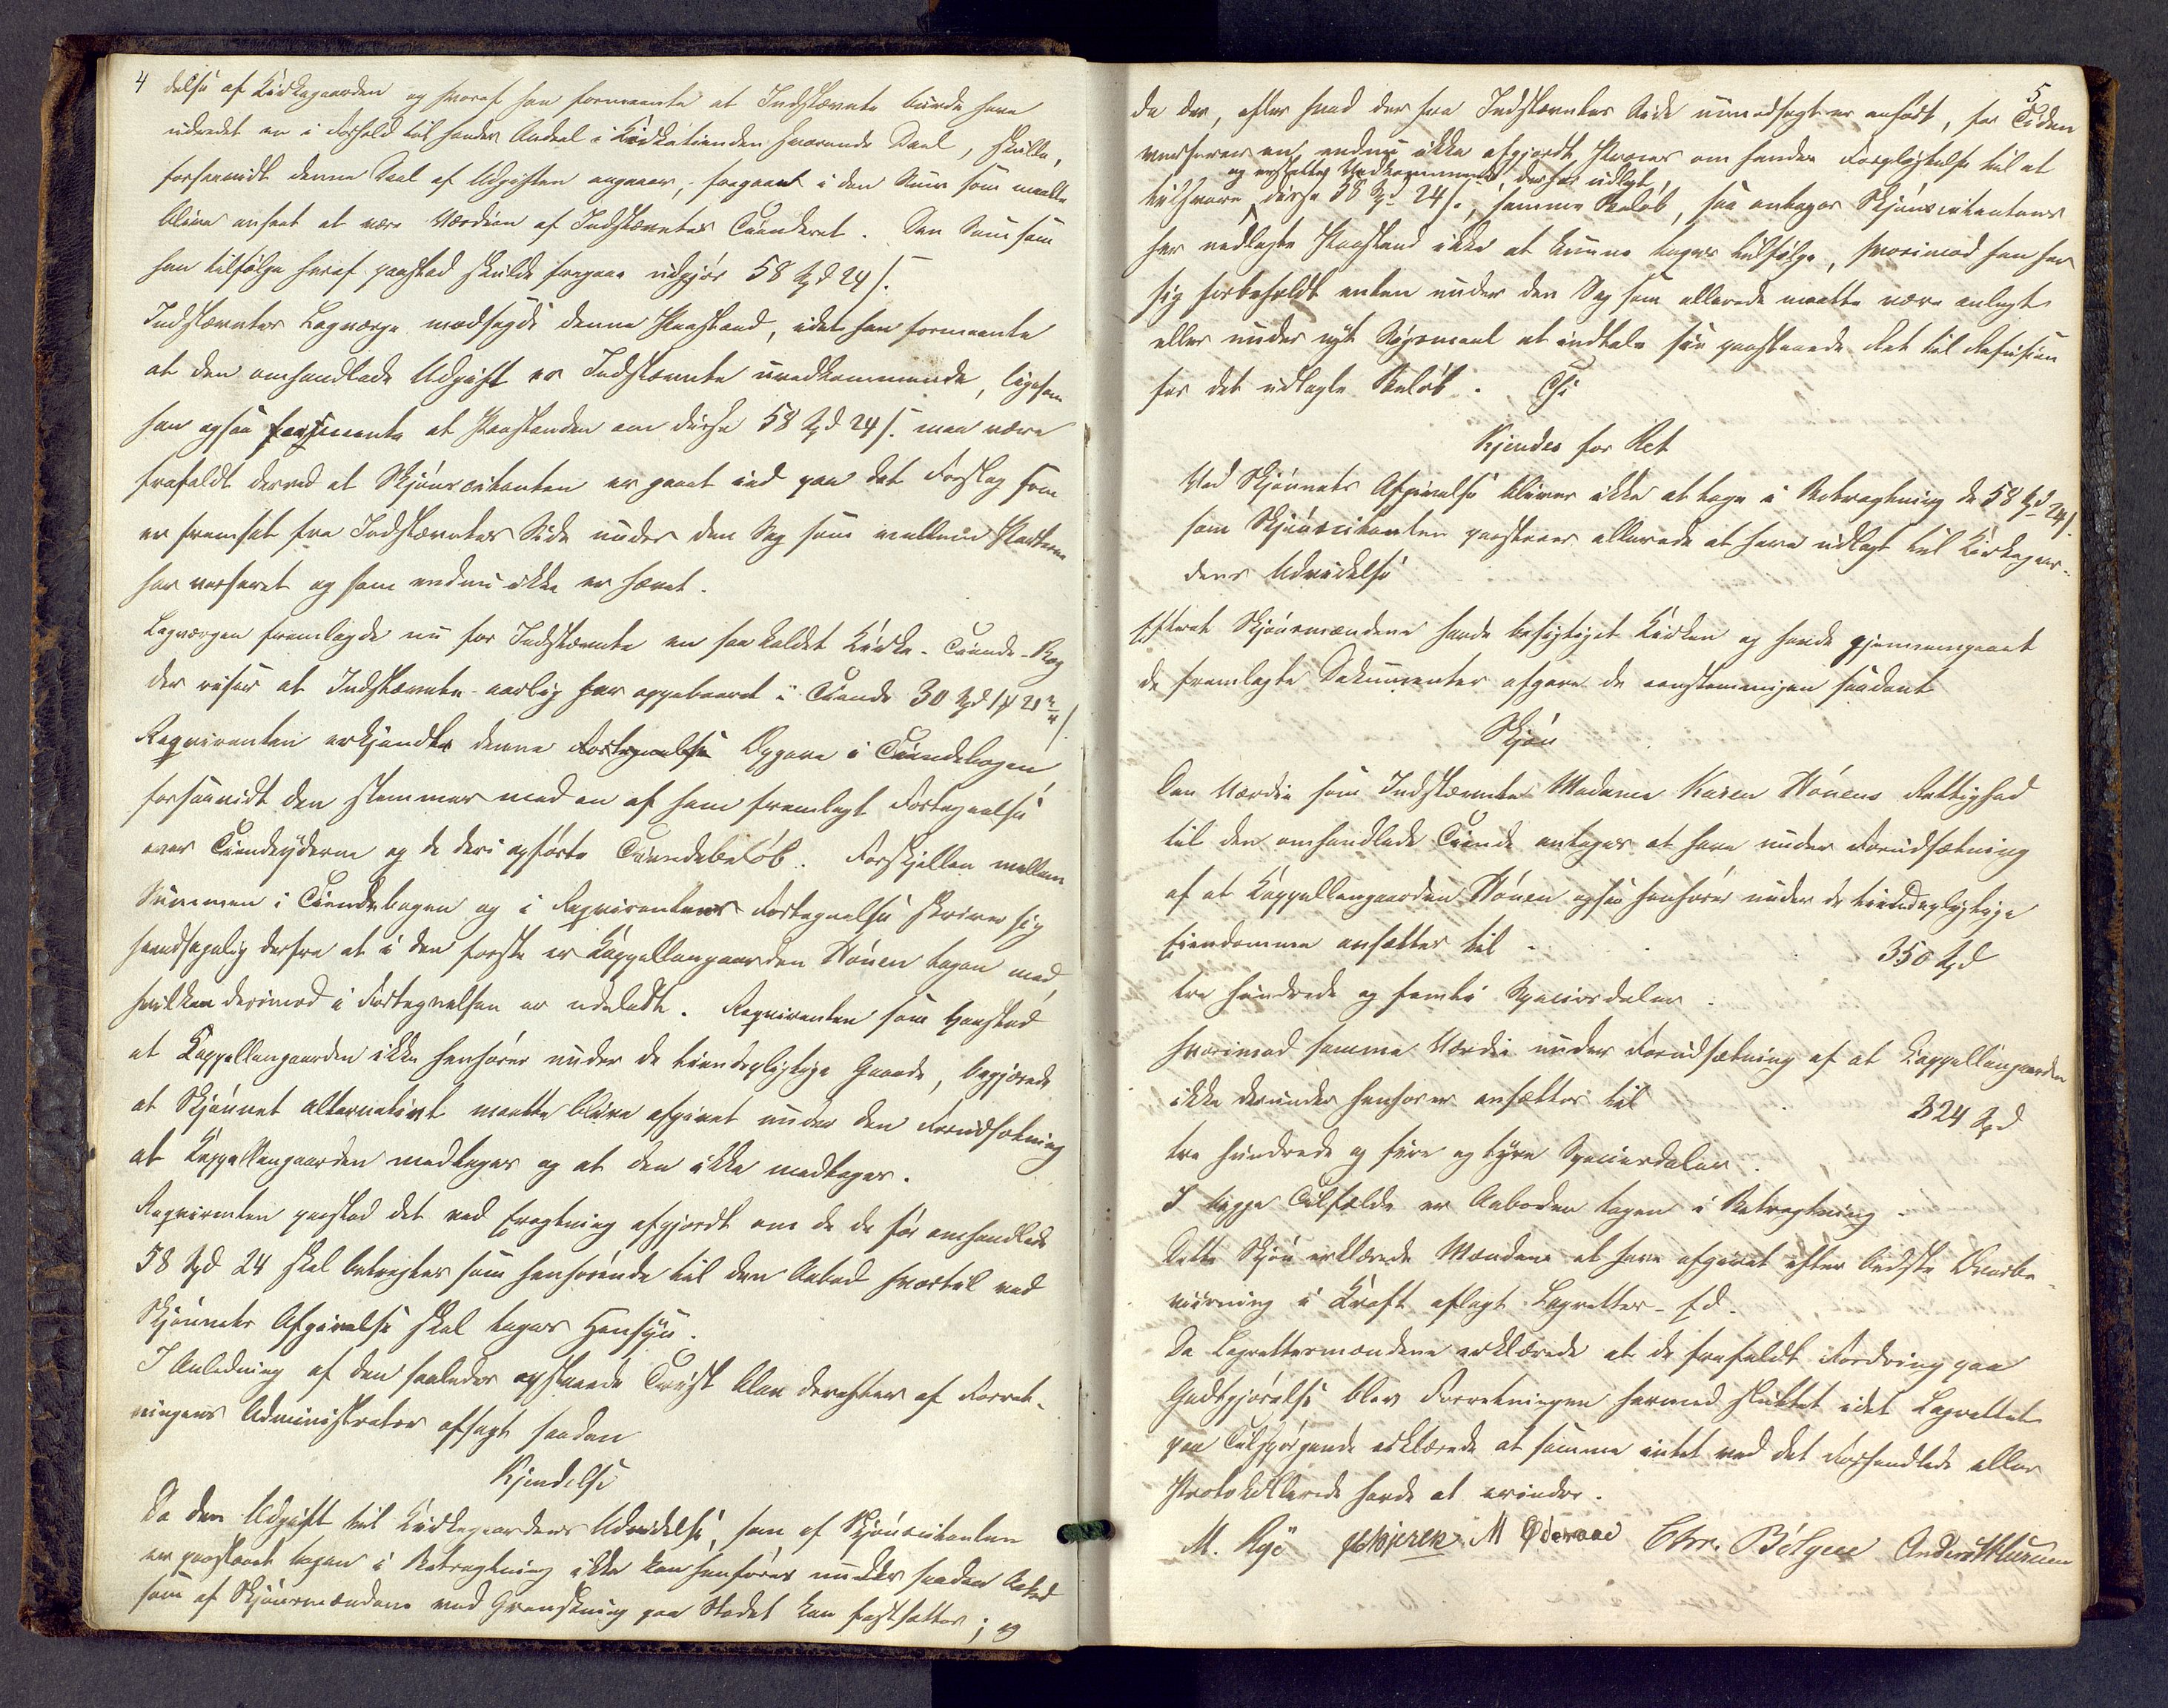 4
delse af Kirkegaarden og hvoraf han formeente at Indstævnte burde have
udredet en i Forhold til hendes Andeel i Kirketienden svarende Deel, skulle,
forsaavidt denne Deel af Udgiften angaaer, fragaaes i den Sum som maatte
blive anseet at være Værdien af Indstævntes Tienderet. Den Sum som
han tilfølge heraf paastod skulde fragaae udgjør 58 Spd 24 s.
Indstævntes Laugværge modsagde denne Paastand, idet han formeente
at den omhandlede Udgift er Indstævnte uvedkommende, ligesom
han ogsaa formeente at Paastanden om disse 58 Spd 24 s. maa være
frafaldt derved at Skjønscitanten er gaaet ind paa det Forslag som
er fremsat fra Indstævntes Side under den Sag som mellem Parterne
har verseret og som endnu ikke er hævet.
Lagværgen fremlagde nu for Indstævnte en saa kaldet Kirke-Tiende-Bog
der viser at Indstævnte aarlig har oppebaaret i Tiende 30 Spd
Reqvirenten erkjendte denne Opgave i Tiendebogen,
forsaavidt den stemmer med en af ham fremlagt Fortegnelse
over Tiendeyderne og de deri opførte Tiendebeløb. Forskjellen mellem
Summen i Tiendebogen og i Reqvirentens Fortegnelse skriver sig
hovedsagelig derfra at i den første er Kappellangaarden Hönen tagen med,
hvilken derimod i Fortegnelsen er udeladt. Reqvirenten som paastod
at Kappellangaarden ikke henhører under de tiendepligtige Gaarde, begjærede
at Skjønnet alternativt maatte blive afgivet under den Forudsætning
at Kappellangaarden medtages og at den ikke medtages.
Reqvirenten paastod det ved Eragtning afgjordt om de før omhandlede
58 Spd 24 skal betragtes som henhørende til den Aabod hvortil ved
Skjønnets Afgivelse skal tages Hensyn.
I Anledning af den saaledes opstaaede Tvist blev derefter af Forret-
ningens Administrator afsagt saadan
Kjendelse
Da den Udgift til Kirkegaardens Udvidelse, som af Skjønscitanten
er paastaaet tagen i Betragtning ikke kan henføres under saadan Aabod
som af Skjønsmændene ved Granskning paa Stedet kan fastsættes; og
5
da der, efter hvad der fra Indstævntes Side uimodsagt er anført, for Tiden
verserer en endnu ikke afgjordt Proces om hendes Forpligtelse til at
og erstatte Vedkommende, der har udlagt,
tilsvare disse 58 Spd 24 s., samme Beløb, saa antages Skjønscitantens
her nedlagte Paastand ikke at kunne tages tilfølge, hvorimod han har
sig forbeholdt enten under den Sag som allerede maatte være anlagt
eller under nyt Søgsmaal at indtale sin paastaaede Ret til Refusion
for det udlagte Beløb. Thi
Kjendes for Ret
Ved Skjønnets Afgivelse bliver ikke at tage i Betragtning de 58 Spd 24 s.
som Skjønscitanten paastaaer allerede at have udlagt til Kirkegaar-
dens Udvidelse
Efterat Skjønsmændene havde besigtiget Kirken og havde gjennemgaaet
de fremlagte Dokumenter afgave de eenstemmigen saadant
Skjøn
Den Værdie som Indstævnte Madame Karen Hönens Rettighed
til den omhandlede Tiende antages at have under Forudsætning
af at Kappellangaarden Hönen ogsaa henhører under de tiendepligtige
Eiendomme ansættes til 350 Spd
tre hundrede og femti Speciesdaler.
hvorimod samme Værdie under Forudsætning af at Kappellangaarden
ikke derunder henhører ansættes til 324 Spd
tre hundrede og fire og tyve Speciesdaler.
I begge Tilfælde er Aaboden tagen i Betragtning.
Dette Skjøn erklærede Mændene at have afgivet efter bedste Overbe-
viisning i Kraft aflagt Lagretter-Ed.
Da Lagrettesmændene erklærede at de frafaldt Fordring paa
Godtgjørelse blev Forretningen hermed sluttet idet Lagrettet
paa Tilspørgende erklærede at samme intet ved det Forhandlede eller
Protokollerede havde at erindre.
M. Rye M Chr. Bölgen Anders